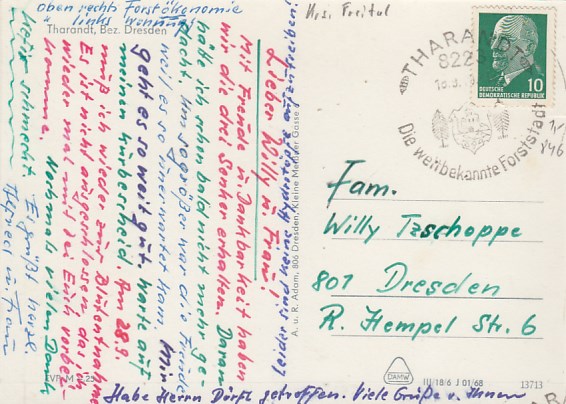 oben rechts Forstökonomie
" links Wennung
Krs. Freital
Tharandt, Bez. Dresden
THARANDT
8223
DEUTSCHE
DEMOKRATISCHE REPUBLIK
10
Die weltbekannte Forststadt
Lieber Willy u. Frau!
Mit Freude u. Dankbarkeit haben
wir die drei Senker erhalten. Daran
hätte ich schon bald nicht mehr ge-
dacht. Umso größer war die Freude
weil es so unerwartet kam. Mir
geht es soweit gut. Warte auf
meinen Kurbescheid. Am 28.9.
muß ich wieder zur Blutentnahme
Es ist nicht ausgeschlossen, das ich
wieder mal mit zu Euch vorbei-
komme. Nochmals vielen Dank
Es grüßt herzl.
Leider sind keine Hydrotöpfe aufzutreiben!
A. u. R. Adam, 806 Dresden, Kleine Meißner Gasse
Fam.
Willy Tzschoppe
801 Dresden
R. Hempel Str. 6
DAMW
III/18/6 J 01/68
13713
EVP M 0,25
Habe Herrn Dörfl getroffen. Viele Grüße v. Ihnen